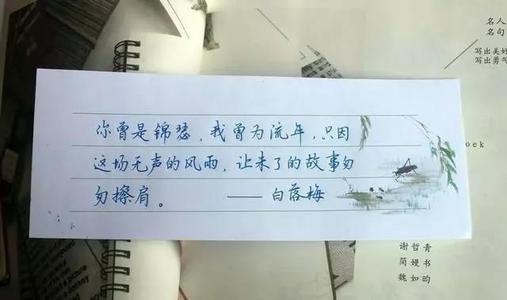 你曾是锦瑟，我曾为流年，只因
这场无声的风雨，让来了的故事匆
匆擦肩。——白落梅
名人
名句
写出美好
写出勇气
ock
谢哲青
简嫚书
魏如昀